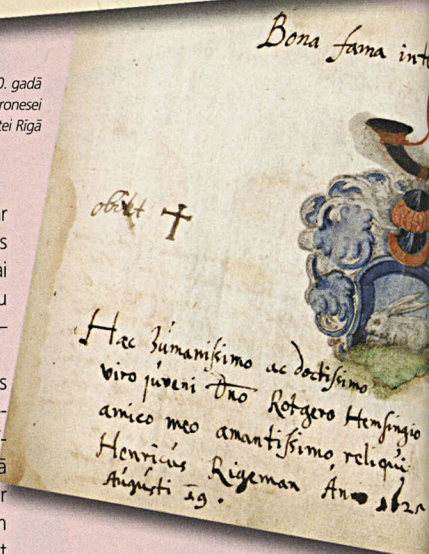 0. gadā
ronesei
tei Rīgā
Bona fama int
obiit
ar
s
ai
u
–
s
–
-
ā
r
n
t
Hæc humanissimo ac doctissimo
viro juveni Dno Rotgero Hemsingio
amico meo amantissimo reliqui
Henricus Rigeman Anno
Augusti 19.